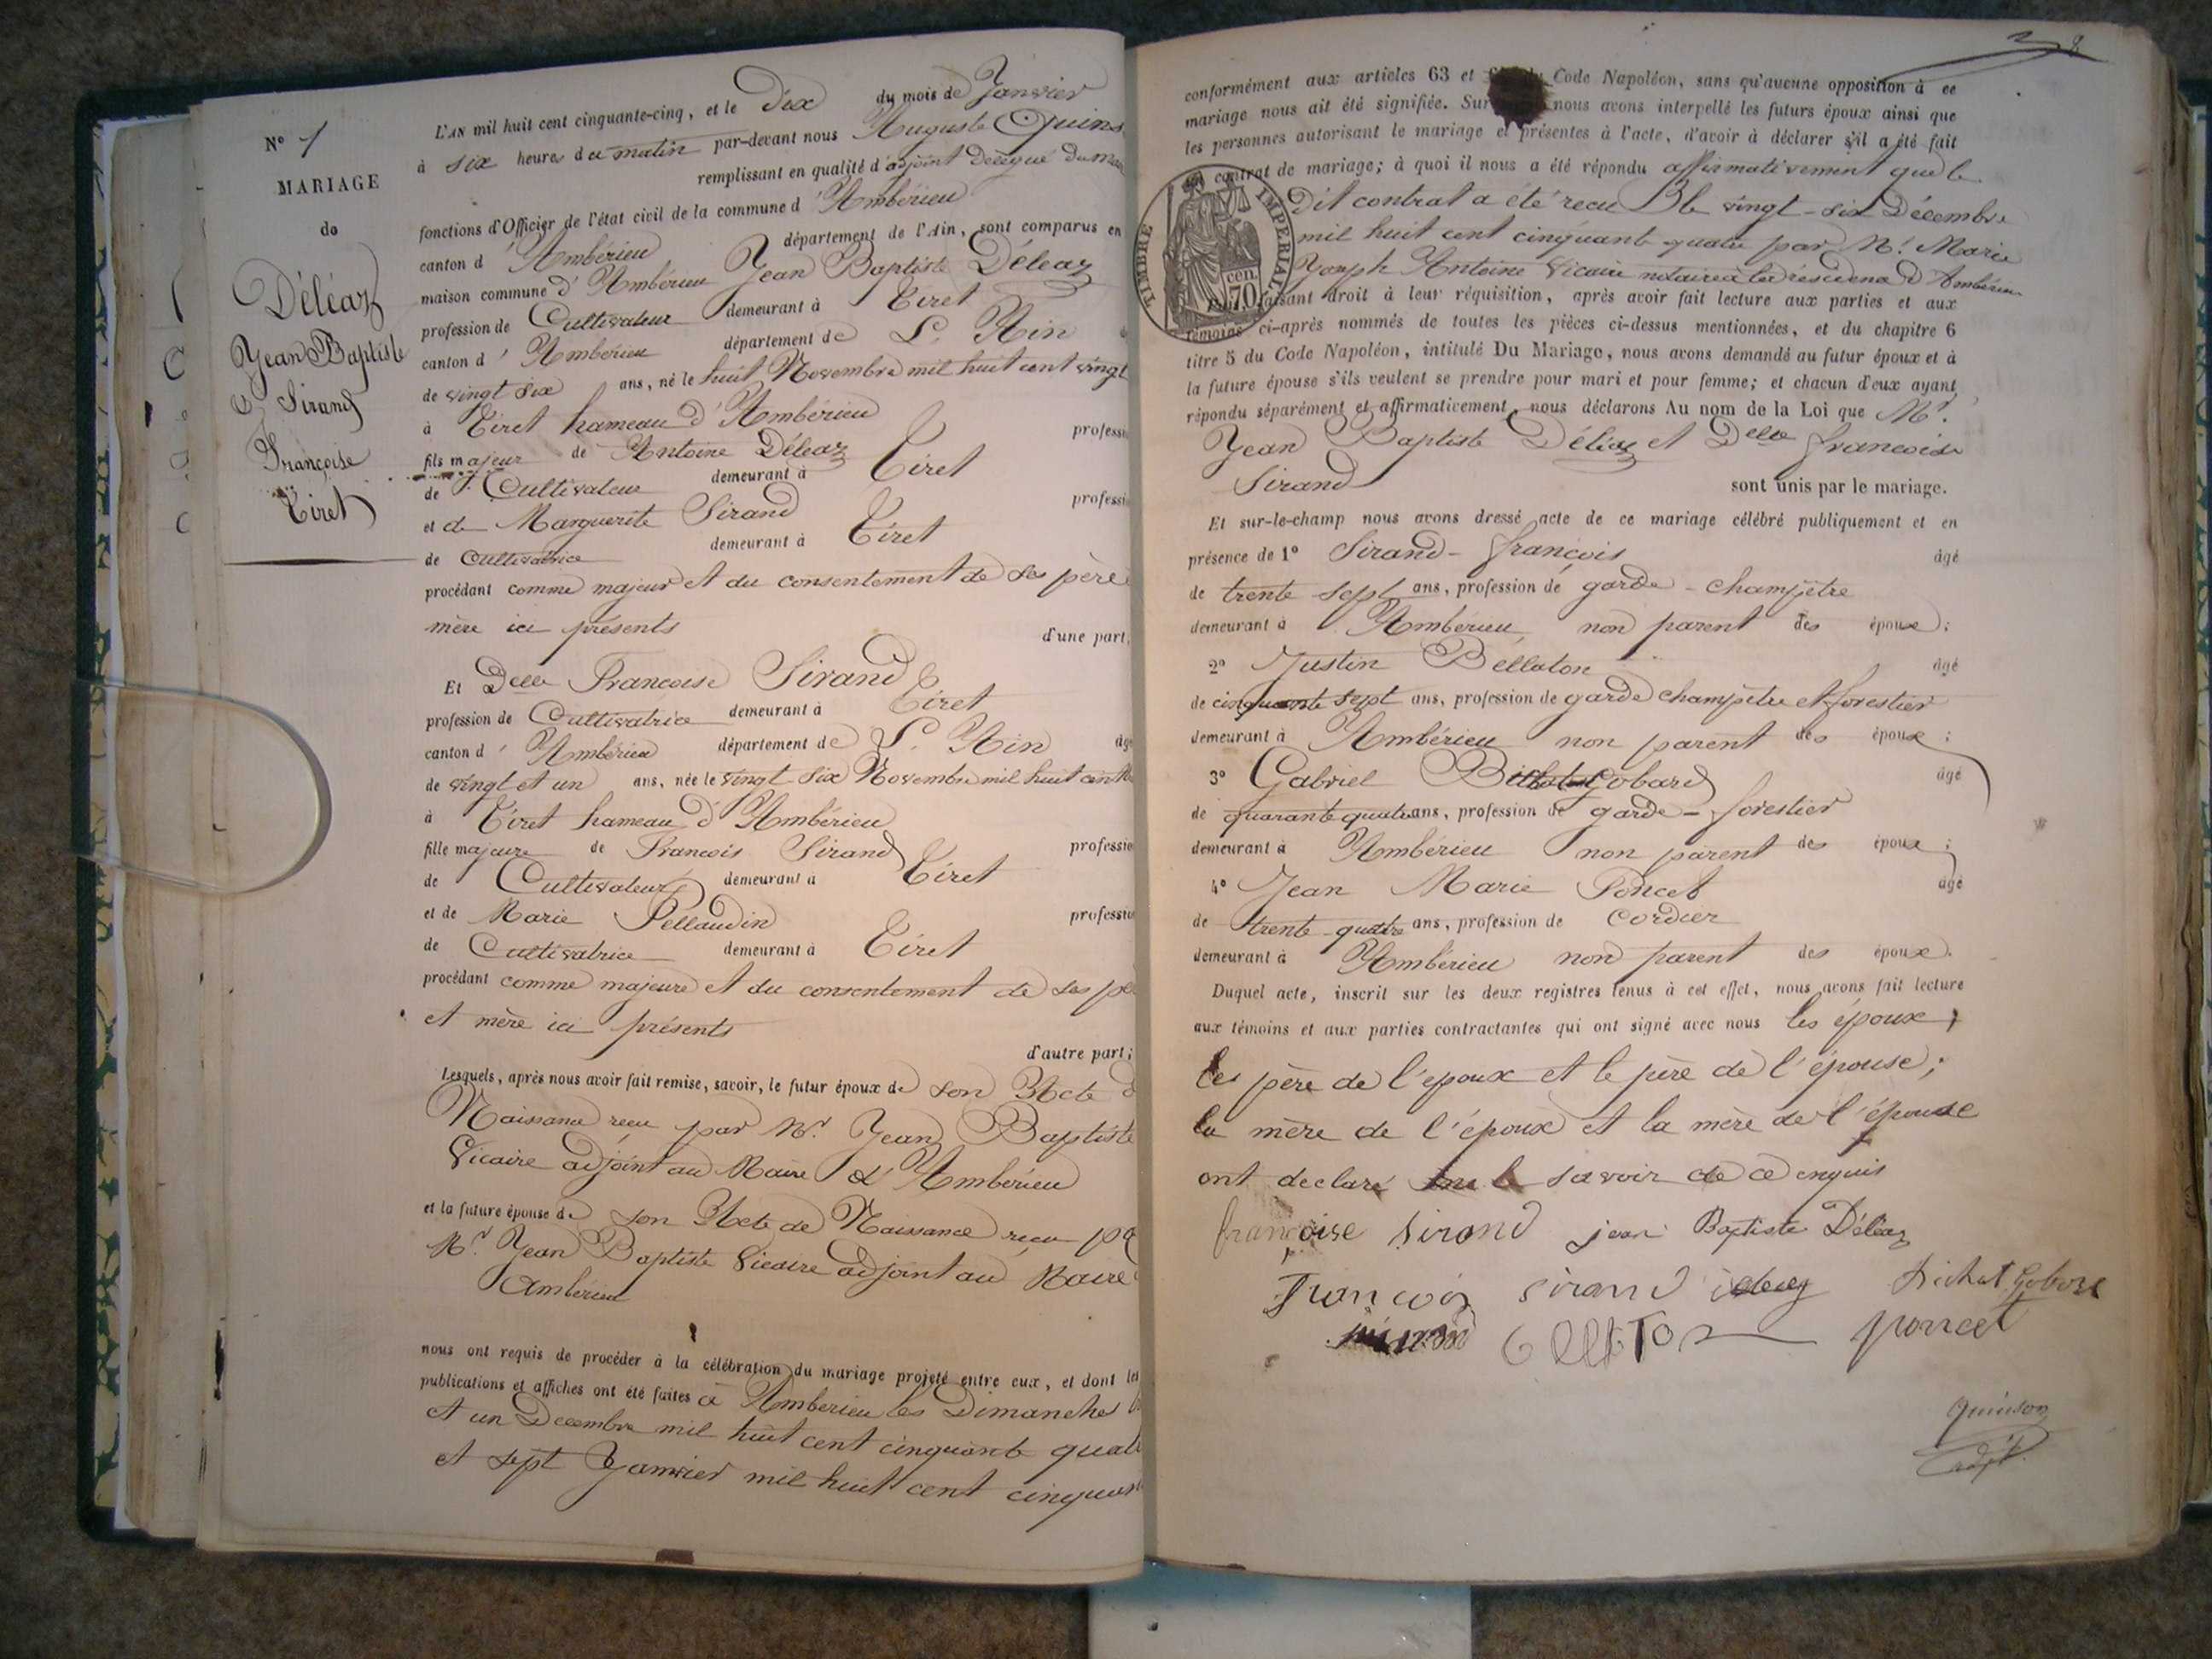 N° 1
MARIAGE
de
Déléaz
Jean Baptiste
& Sirand
Françoise
Tiret
L'AN mil huit cent cinquante-cinq, et le Dix du mois de Janvier
à six heures du matin par-devant nous Auguste Quins
remplissant en qualité d'adjoint délégué du mai
fonctions d'Officier de l'état civil de la commune d'Ambérieu
canton d'Ambérieu département de l'Ain, sont comparus en
maison commune d'Ambérieu Jean Baptiste Déléaz
profession de Cultivateur demeurant à Tiret
canton d'Ambérieu département de L'Ain
de vingt six ans, né le huit Novembre mil huit cent vingt
à Tiret hameau d'Ambérieu
fils majeur de Antoine Déléaz professi
de Cultivateur demeurant à Tiret
et de Marguerite Sirand professi
de Cultivatrice demeurant à Tiret
procédant comme majeur et du consentement de ses père
mère ici présents d'une part,
Et Delle Françoise Sirand
profession de Cultivatrice demeurant à Tiret
canton d'Ambérieu département de L'Ain âg
de vingt et un ans, née le vingt six Novembre mil huit cent
à Tiret hameau d'Ambérieu
fille majeure de François Sirand professio
de Cultivateur demeurant à Tiret
et de Marie Pellaudin professio
de Cultivatrice demeurant à Tiret
procédant comme majeure et du consentement de ses pè
et mère ici présents
d'autre part;
Lesquels, après nous avoir fait remise, savoir, le futur époux de son Acte d
Naissance reçu par Mr. Jean Baptiste
Vicaire adjoint au Maire d'Ambérieu
et la future épouse de son Acte de Naissance reçu pa
Mr. Jean Baptiste Vicaire adjoint au Maire
Ambérieu
nous ont requis de procéder à la célébration du mariage projeté entre eux, et dont les
publications et affiches ont été faites à Ambérieu les Dimanches
et un Decembre mil huit cent cinquante quat
et sept Janvier mil huit cent cinquan
8
conformément aux articles 63 et du Code Napoléon, sans qu'aucune opposition à ce
mariage nous ait été signifiée. Sur nous avons interpellé les futurs époux ainsi que
les personnes autorisant le mariage et présentes à l'acte, d'avoir à déclarer s'il a été fait
un contrat de mariage; à quoi il nous a été répondu affirmativement que le
Dit contrat a été reçu le vingt-six Décembre
mil huit cent cinquante quatre par Me. Marie
Joseph Antoine Vicaire notaire à la résidence d'Ambérieu
TIMBRE IMPERIAL
70 cen.
faisant droit à leur réquisition, après avoir fait lecture aux parties et aux
témoins ci-après nommés de toutes les pièces ci-dessus mentionnées, et du chapitre 6
titre 5 du Code Napoléon, intitulé Du Mariage, nous avons demandé au futur époux et à
la future épouse s'ils veulent se prendre pour mari et pour femme; et chacun d'eux ayant
répondu séparément et affirmativement, nous déclarons Au nom de la Loi que Mr.
Jean Baptiste Déléaz et Delle françoise
Sirand sont unis par le mariage.
Et sur-le-champ nous avons dressé acte de ce mariage célébré publiquement et en
présence de 1° Sirand-françois âgé
de trente sept ans, profession de garde-champêtre
demeurant à Ambérieu, non parent des époux;
2° Justin Bellaton âgé
de cinquante sept ans, profession de garde champêtre et forestier
demeurant à Ambérieu non parent des époux;
3° Gabriel Gobard âgé
de quarante quatre ans, profession de garde-forestier
demeurant à Ambérieu non parent des époux;
4° Jean Marie Poncet âgé
de trente-quatre ans, profession de cordier
demeurant à Ambérieu non parent des époux.
Duquel acte, inscrit sur les deux registres tenus à cet effet, nous avons fait lecture
aux témoins et aux parties contractantes qui ont signé avec nous les époux,
les père de l'époux et le père de l'épouse;
la mère de l'époux et la mère de l'épouse
ont declaré ne le savoir de ce enquis
françoise Sirand jean Baptiste Déléaz
François Sirand
poncet
Quinson
adjt.